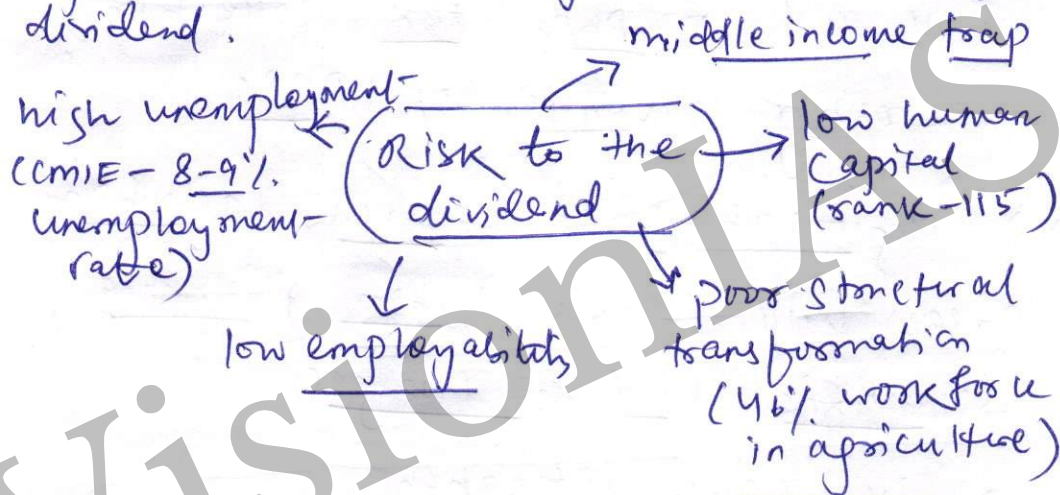 dividend.
middle income trap
high unemployment
(CMIE - 8-9%.
unemployment
rate)
Risk to the
dividend
low human
capital
(rank-115)
low employability
poor structural
transformation
(46% workforce
in agriculture)
VisionIAS